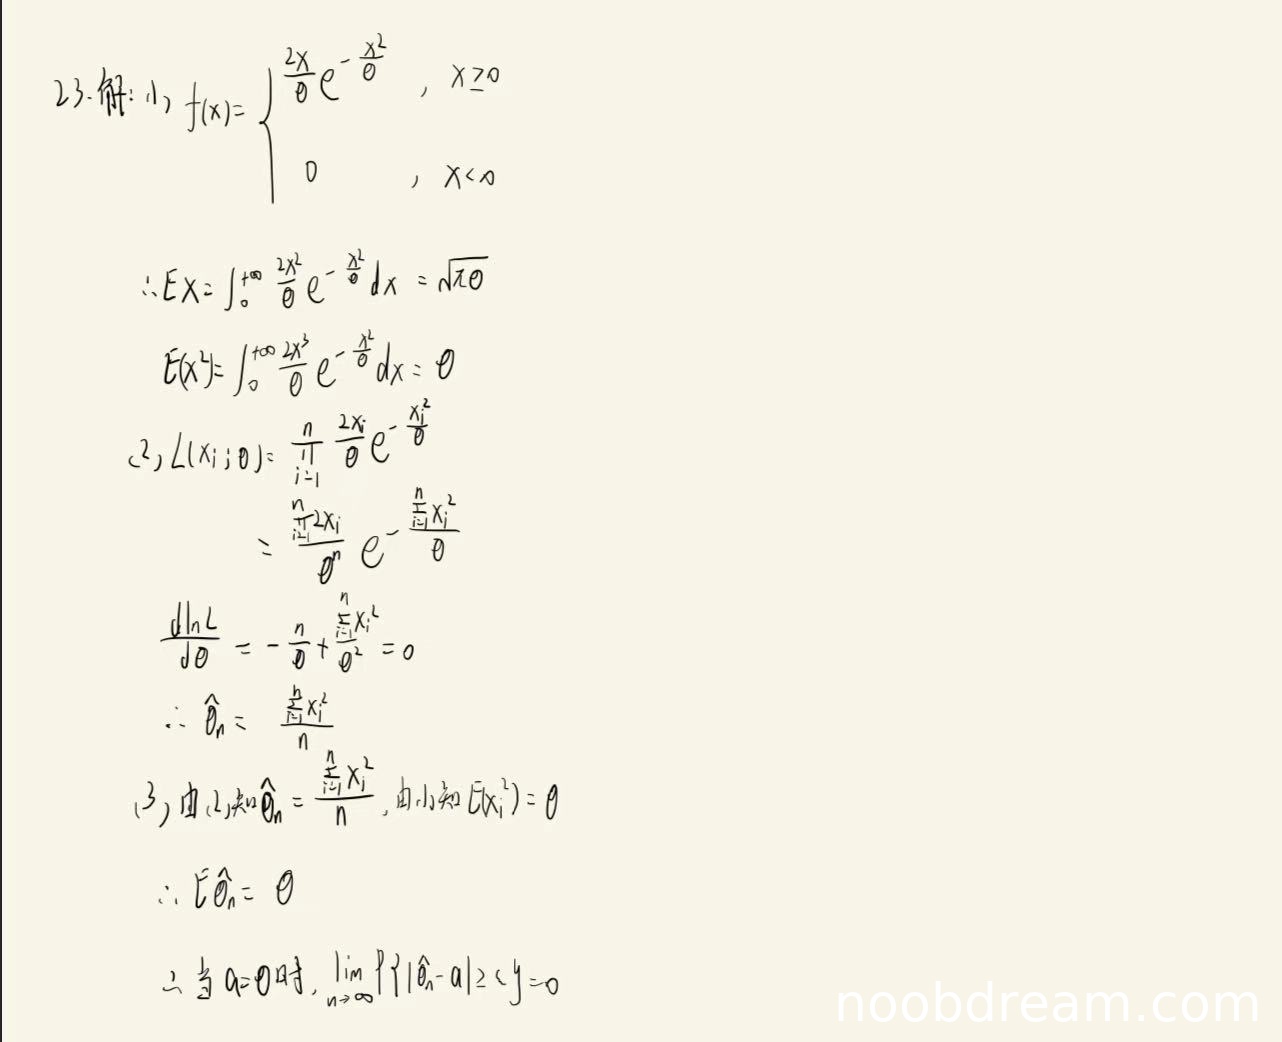 23.解:(1) f(x)= { 2x/θ e^{-x²/θ} , x≥0
0 , x<0
∴EX=∫₀^{+∞} 2x²/θ e^{-x²/θ} dx = √πθ
E(x²)=∫₀^{+∞} 2x³/θ e^{-x²/θ} dx = θ
(2) L(xᵢ;θ)= ∏_{i=1}^{n} 2xᵢ/θ e^{-xᵢ²/θ}
= ∏_{i=1}^{n} 2xᵢ / θⁿ e^{-∑_{i=1}^{n} xᵢ²/θ}
dlnL/dθ = -n/θ + ∑_{i=1}^{n} xᵢ²/θ² = 0
∴ θ̂ₙ = ∑_{i=1}^{n} xᵢ² / n
(3) 由(2)知θ̂ₙ = ∑_{i=1}^{n} xᵢ² / n , 由(1)知E(xᵢ²)=θ
∴ Eθ̂ₙ = θ
∴ 当a=θ时, lim_{n→∞} P{|θ̂ₙ-a|≥ε}=0
noobdream.com